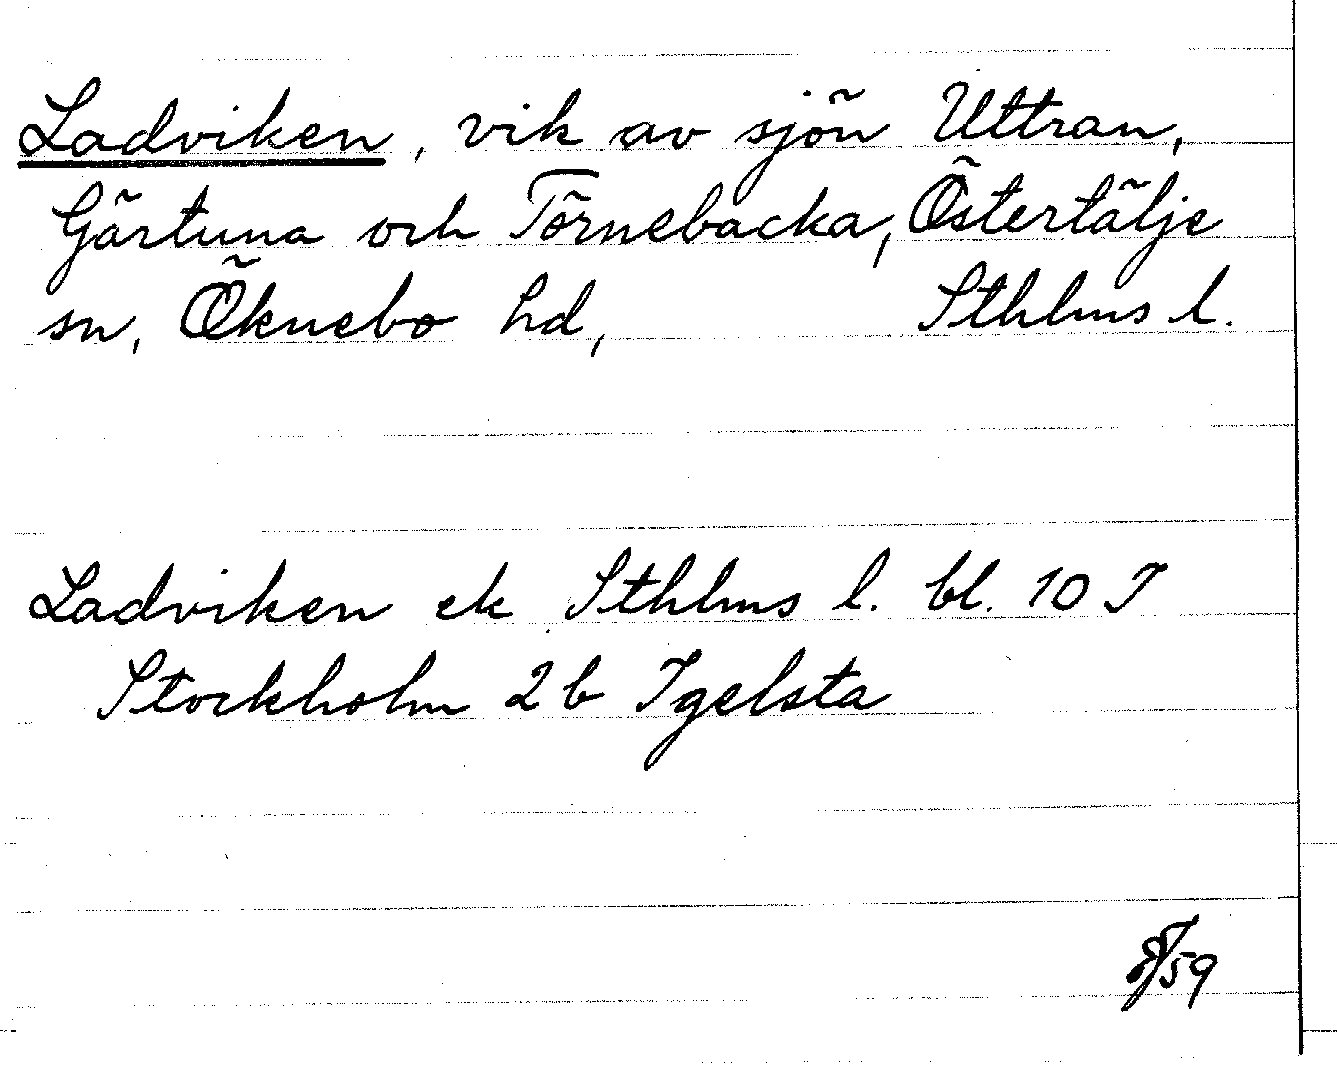 Ladviken, vik av sjön Uttran,
Gärtuna och Törnebacka, Östertälje
sn, Öknebo hd, Sthlms l.
Ladviken ek Sthlms l. bl. 10 I
Stockholm 2b Igelsta
59